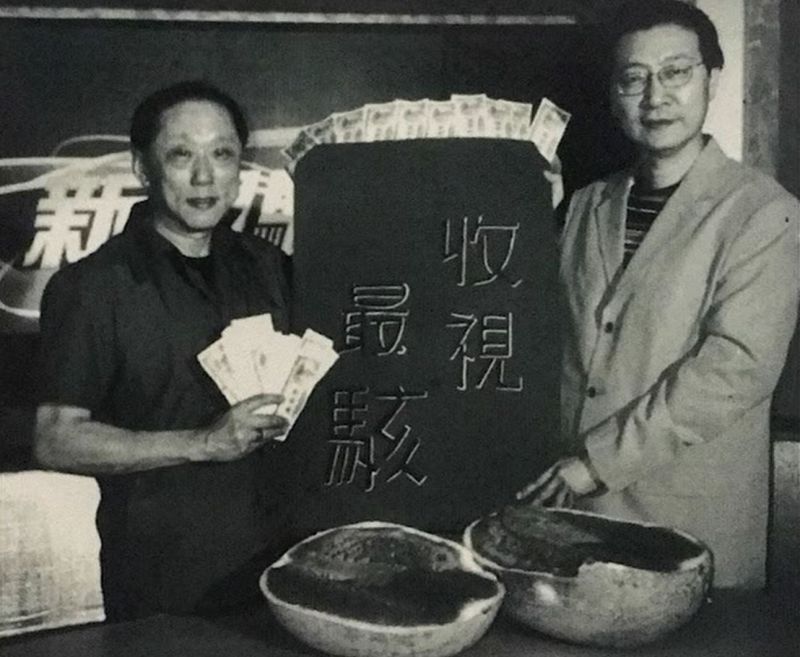 收視
最駭
新